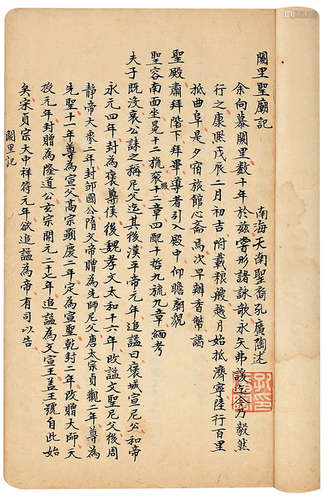 闕里聖廟記
南海天南聖裔孔廣陶述
余向慕闕里數十年於茲嘗形諸詠歌永矢弗諼迄今乃毅然
行之康熙戊辰二月初吉附載糧艘越月始抵濟寧陸行百里
抵曲阜是夕宿旅館心齋焉次早辦香幣謁
聖殿肅拜階下拜畢導者引入殿中仰瞻廟貌
聖容南面坐冕十二旒袞十二章四配十哲九旒九章緬考
夫子既沒哀公誄之稱尼父迄其後漢平帝元年追諡曰褒城宣尼公和帝
永元四年封為褒尊侯後魏孝文太和十六年改諡文聖尼父後周
靜帝大象二年封鄒國公隋文帝贈為先師尼父唐太宗貞觀二年尊為
先聖十一年尊為宣父高宗顯慶二年定為宣聖乾封二年改贈大師天
授元年封隆道公玄宗開元二十七年追諡為文宣王蓋王號自此始
矣宋真宗大中祥符元年欲追諡為帝有司以告
闕里記